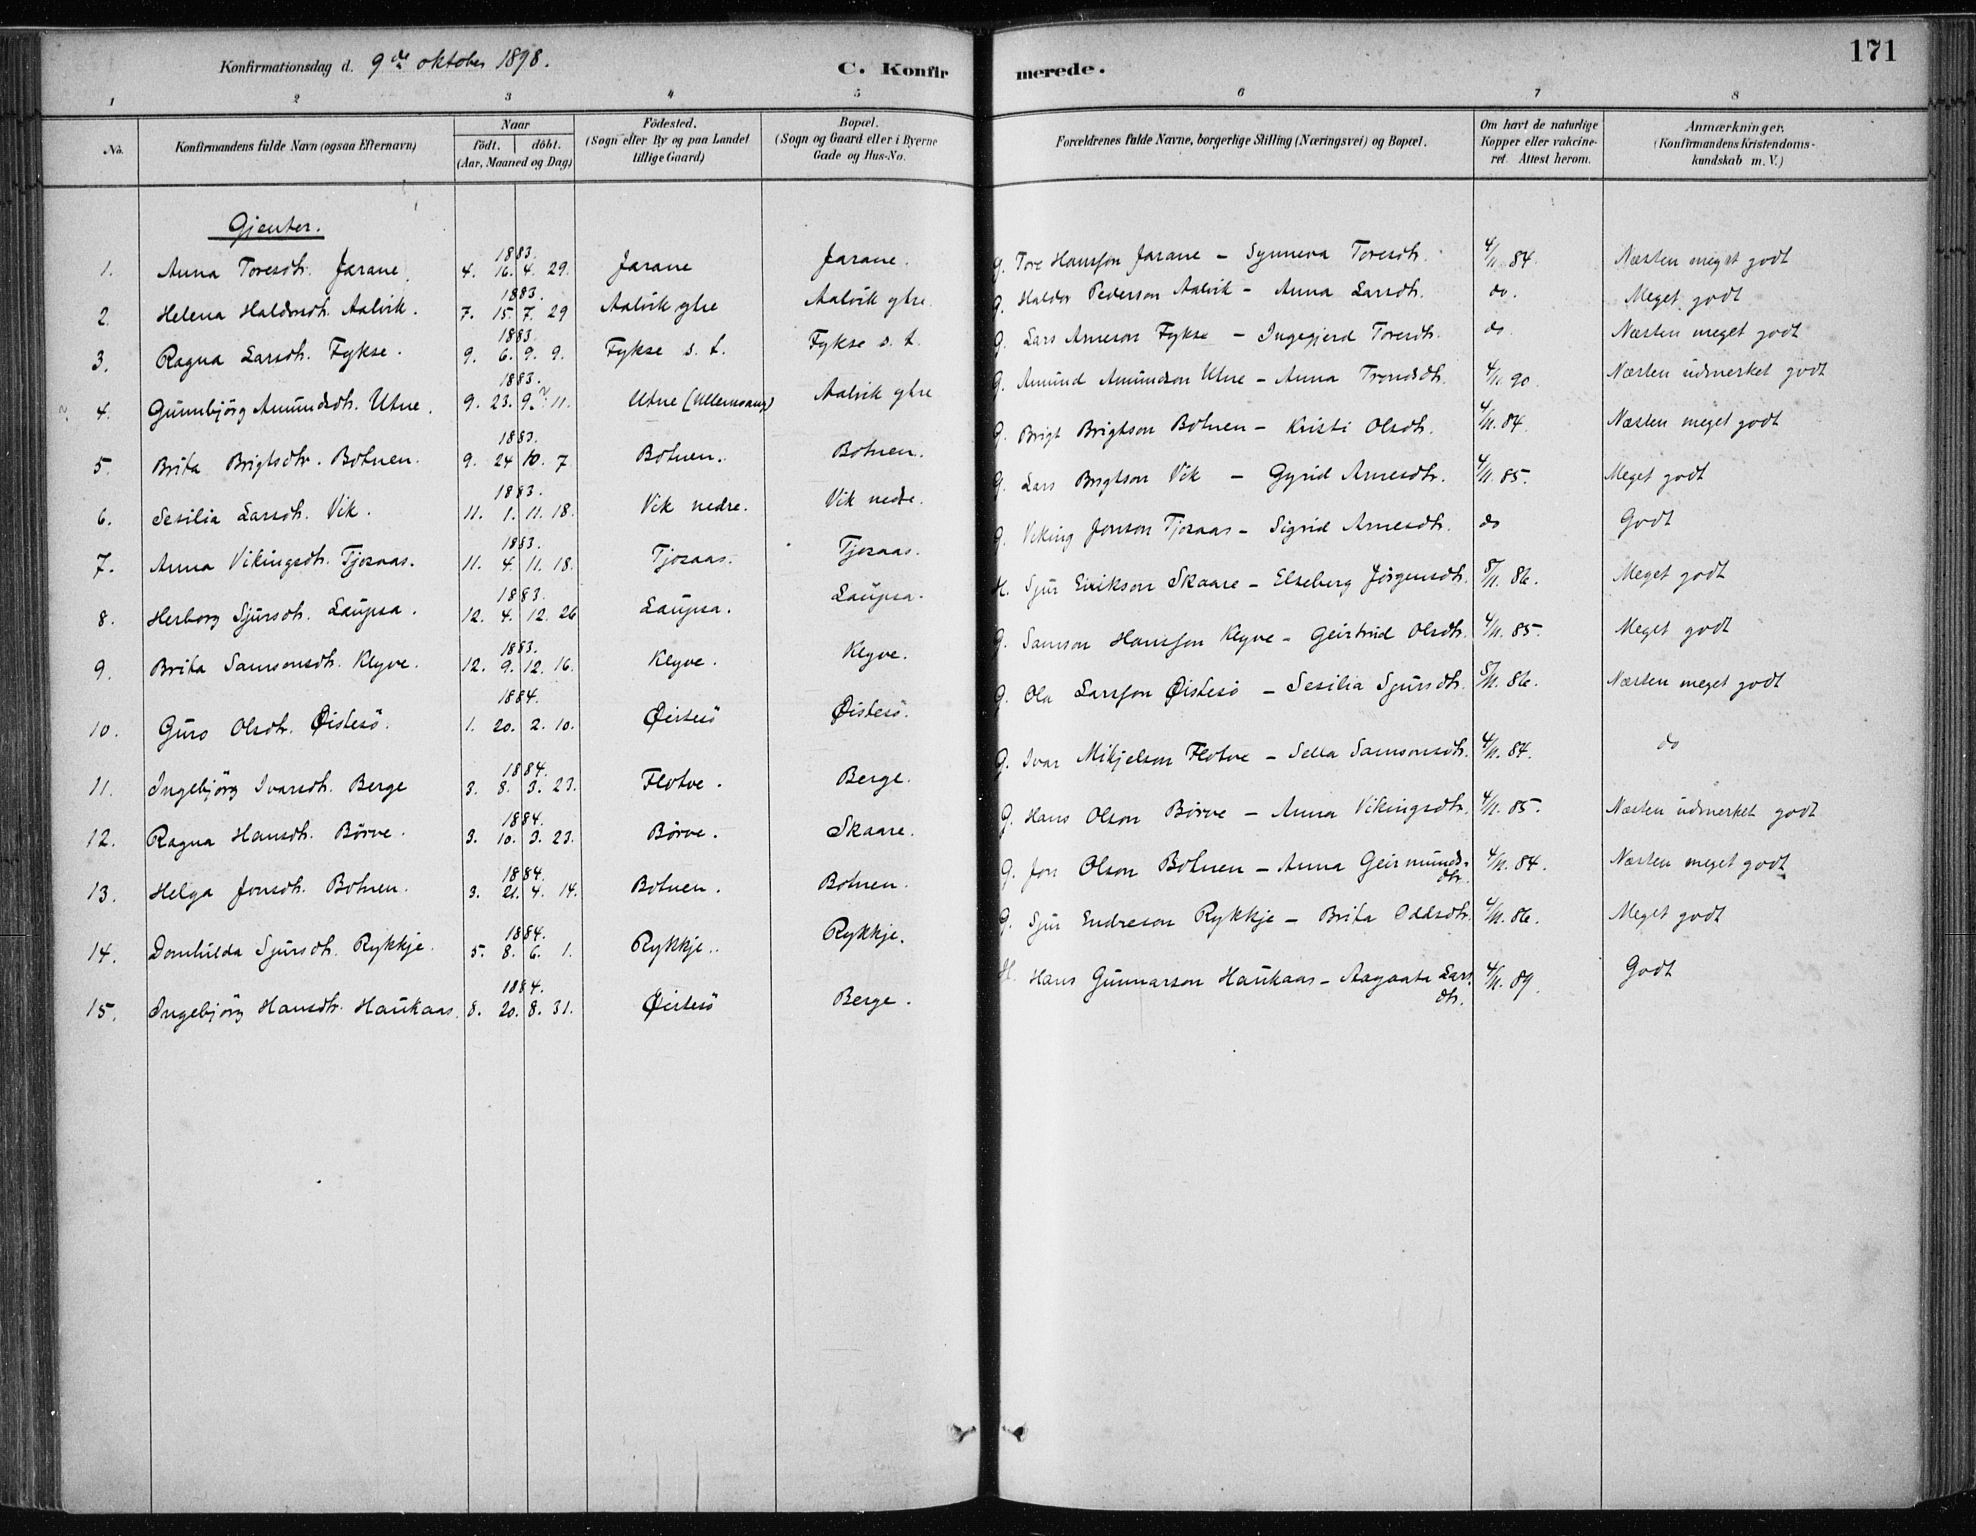 Konfirmationsdag d. 9de oktober 1898.
C. Konfirmerede.
171
1 2 3 4 5 6 7 8
No. Konfirmandens fulde Navn (ogsaa Efternavn) Naar födt. döbt. (Aar, Maaned og Dag) Födested. (Sogn eller By og paa Landet tillige Gaard) Bopæl. (Sogn og Gaard eller i Byerne Gade og Hus-No. Forældrenes fulde Navne, borgerlige Stilling (Næringsvei) og Bopæl. Om havt de naturlige Kopper eller vakcineret. Attest herom. Anmærkninger. (Konfirmandens Kristendomskundskab m. V.)
Gjenter.
1. Anna Toresdtr. Jarane. 1883. 4. 16. 4. 29. Jarane Jarane. G. Tore Hansson Jarane – Synneva Toresdtr. 4/11. 84. Næsten meget godt
2. Helena Haldorsdtr. Aalvik. 1883. 7. 15. 7. 29 Aalvik ytre Aalvik ytre G. Haldor Pederson Aalvik – Anna Larsdtr. do. Meget godt
3. Ragna Larsdtr. Fykse. 1883. 9. 6. 9. 9. Fykse s. t. Fykse s. t. G. Lars Arneson Fykse – Ingegjerd Toresdtr. do Næsten meget godt
4. Gunnbjörg Amundsdtr. Utne. 1883. 9. 23. 9. 11. Utne (Ullensvang) Aalvik ytre G. Amund Amundson Utne – Anna Trondsdtr. 4/11. 90. Næsten udmerket godt
5. Brita Brigtsdtr. Botnen. 1883. 9. 24 10. 7 Botnen. Botnen. G. Brigt Brigtson Botnen – Kristi Olsdtr. 4/11. 84. Næsten meget godt
6. Sesilia Larsdtr. Vik. 1883. 11. 1. 11. 18. Vik nedre. Vik nedre. G. Lars Brigtson Vik – Gyrid Arnesdtr. 4/11. 85. Meget godt
7. Anna Vikingsdtr. Tjosaas. 1883. 11. 4. 11. 18. Tjosaas. Tjosaas. G. Viking Jonson Tjosaas – Sigrid Arnesdtr. do Godt
8. Herborg Sjursdtr. Laupsa. 1883. 12. 4. 12. 26 Laupsa. Laupsa. H. Sjur Eirikson Skaare – Elseberg Jørgensdtr. 8/11. 86. Meget godt
9. Brita Samsonsdtr. Klyve. 1883. 12. 9. 12. 16. Klyve. Klyve. G. Samson Hansson Klyve – Geirtrud Olsdtr. 4/11. 85. Meget godt
10. Guro Olsdtr. Øistesö. 1884. 1. 20. 2. 10. Øistesö Øistesö. G. Ola Larsson Øistesö – Sesilia Sjursdtr. 8/11. 86. Næsten meget godt
11. Ingebjörg Ivarsdtr. Berge 1884. 3. 8. 3. 23. Flotve. Berge. G. Ivar Mikjelson Flotve – Sella Samsonsdtr. 4/11. 84. do
12. Ragna Hansdtr. Börve. 1884. 3. 10. 3. 23. Börve. Skaare. G. Hans Olson Börve – Anna Vikingsdtr. 4/11. 85. Næsten udmerket godt
13. Helga Jonsdtr. Botnen. 1884. 3. 21. 4. 14. Botnen. Botnen. G. Jon Olson Botnen – Anna Geirmundsdtr. 4/11. 84. Næsten meget godt
14. Domhilda Sjursdtr. Rykkje. 1884. 5. 8. 6. 1. Rykkje. Rykkje. G. Sjur Endreson Rykkje – Brita Oddsdtr. 4/11. 86. Meget godt
15. Ingebjörg Hansdtr. Haukaas. 1884. 8. 20. 8. 31. Øistesö Berge. H. Hans Gunnarson Haukaas – Aagaata Larsdtr. 4/11. 89. Godt